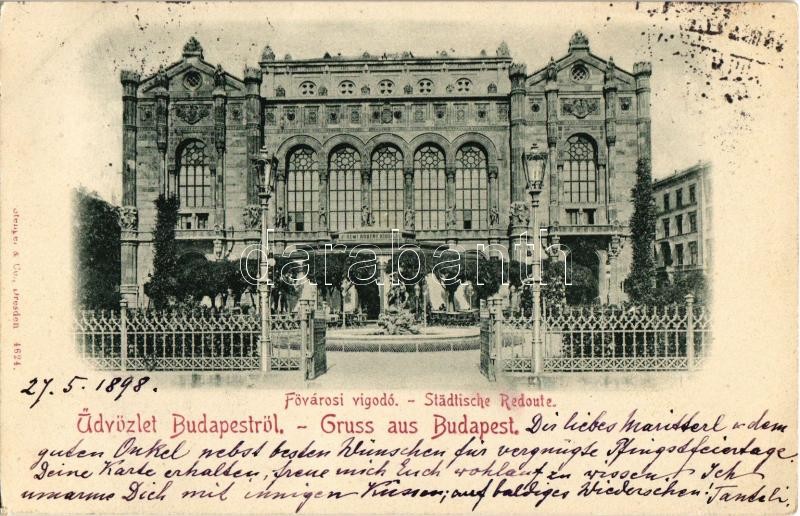 Fővárosi vigodó. - Städtische Redoute.
27. 5. 1898.
Üdvözlet Budapestről. - Gruss aus Budapest. Dir liebes Maritterl u dem
guten Onkel nebst besten Wünschen für vergnügte Pfingstfeiertage.
Deine Karte erhalten, freue mich Euch wohlauf zu wissen. Ich
umarme Dich mit innigen Küssen, auf baldiges Wiedersehen! Tanteli.
Stengel & Co., Dresden 4624.
darabanth